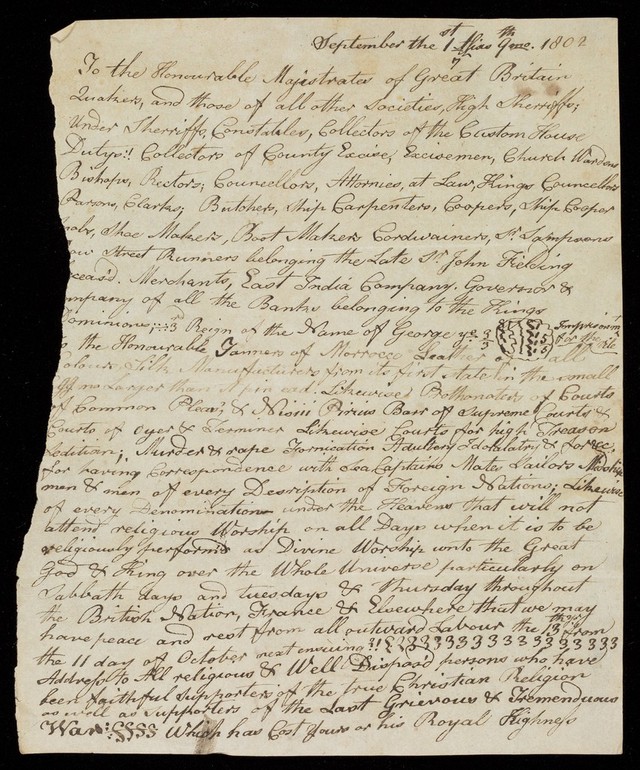 September the 1st Alias 9th me. 1802
To the Honourable Majestrates of Great Britain
Quakers, and those of all other Societies, High Sherriffs;
Under Sherriffs, Constables, Collectors of the Custom House
Dutys!! Collectors of County Excise, Excisemen, Church Wardens
Bishops, Rectors; Councellors, Attornies, at Law, Kings Councellors
Parsons, Clarks; Butchers, Ship Carpenters, Coopers, Ship Cooper
Shoe Makers, Boot Makers Cordwainers, St. Sampsons
Street Runners belonging the Late Sr. John Fielding
ceas'd. Merchants, East India Company. Governor &
mpany of all the Banks belonging to the Kings
ominions; 3d Reign of the Name of George ye. 3 Imprison'mt for the
the Honourable Tanners of Morrocco Leather of all
Colours, Silk Manufacturers from its first state in the small
Egg no Larger than A pin ead. Likewise Prothonoters of Courts
of Common Pleas, & Nisiii Pireus Barr of Supreme Courts &
Courts of Oyer & Terminer Likewise Courts for high Treason
edition; Murder & rape Fornication Adultery Idolalatry & for &c,
for having Correspondence with Sea Captains Mates Sailors Midship
men & men of every Description of Foreign Nations; Likewise
of every Denomination under the Heavens that will not
attend religious Worship on all Days when it is to be
religiously perform'd as Divine Worship unto the Great
God & King over the Whole Universe particularly on
Sabbath days and Tuesdays & Thursday throughout
the British Nation, France & Elsewhere that we may
have peace and rest from all outward Labour the 13 from
the 11 day of October next ensuing!! 33333333333333333
Address to All religious & Well Dispos'd persons who have
been faithful Supporters of the true Christian Religion
as well as Supporters of the Last Grievous & Tremenduous
War: SSSS Which has Cost Yours or his Royal Highness